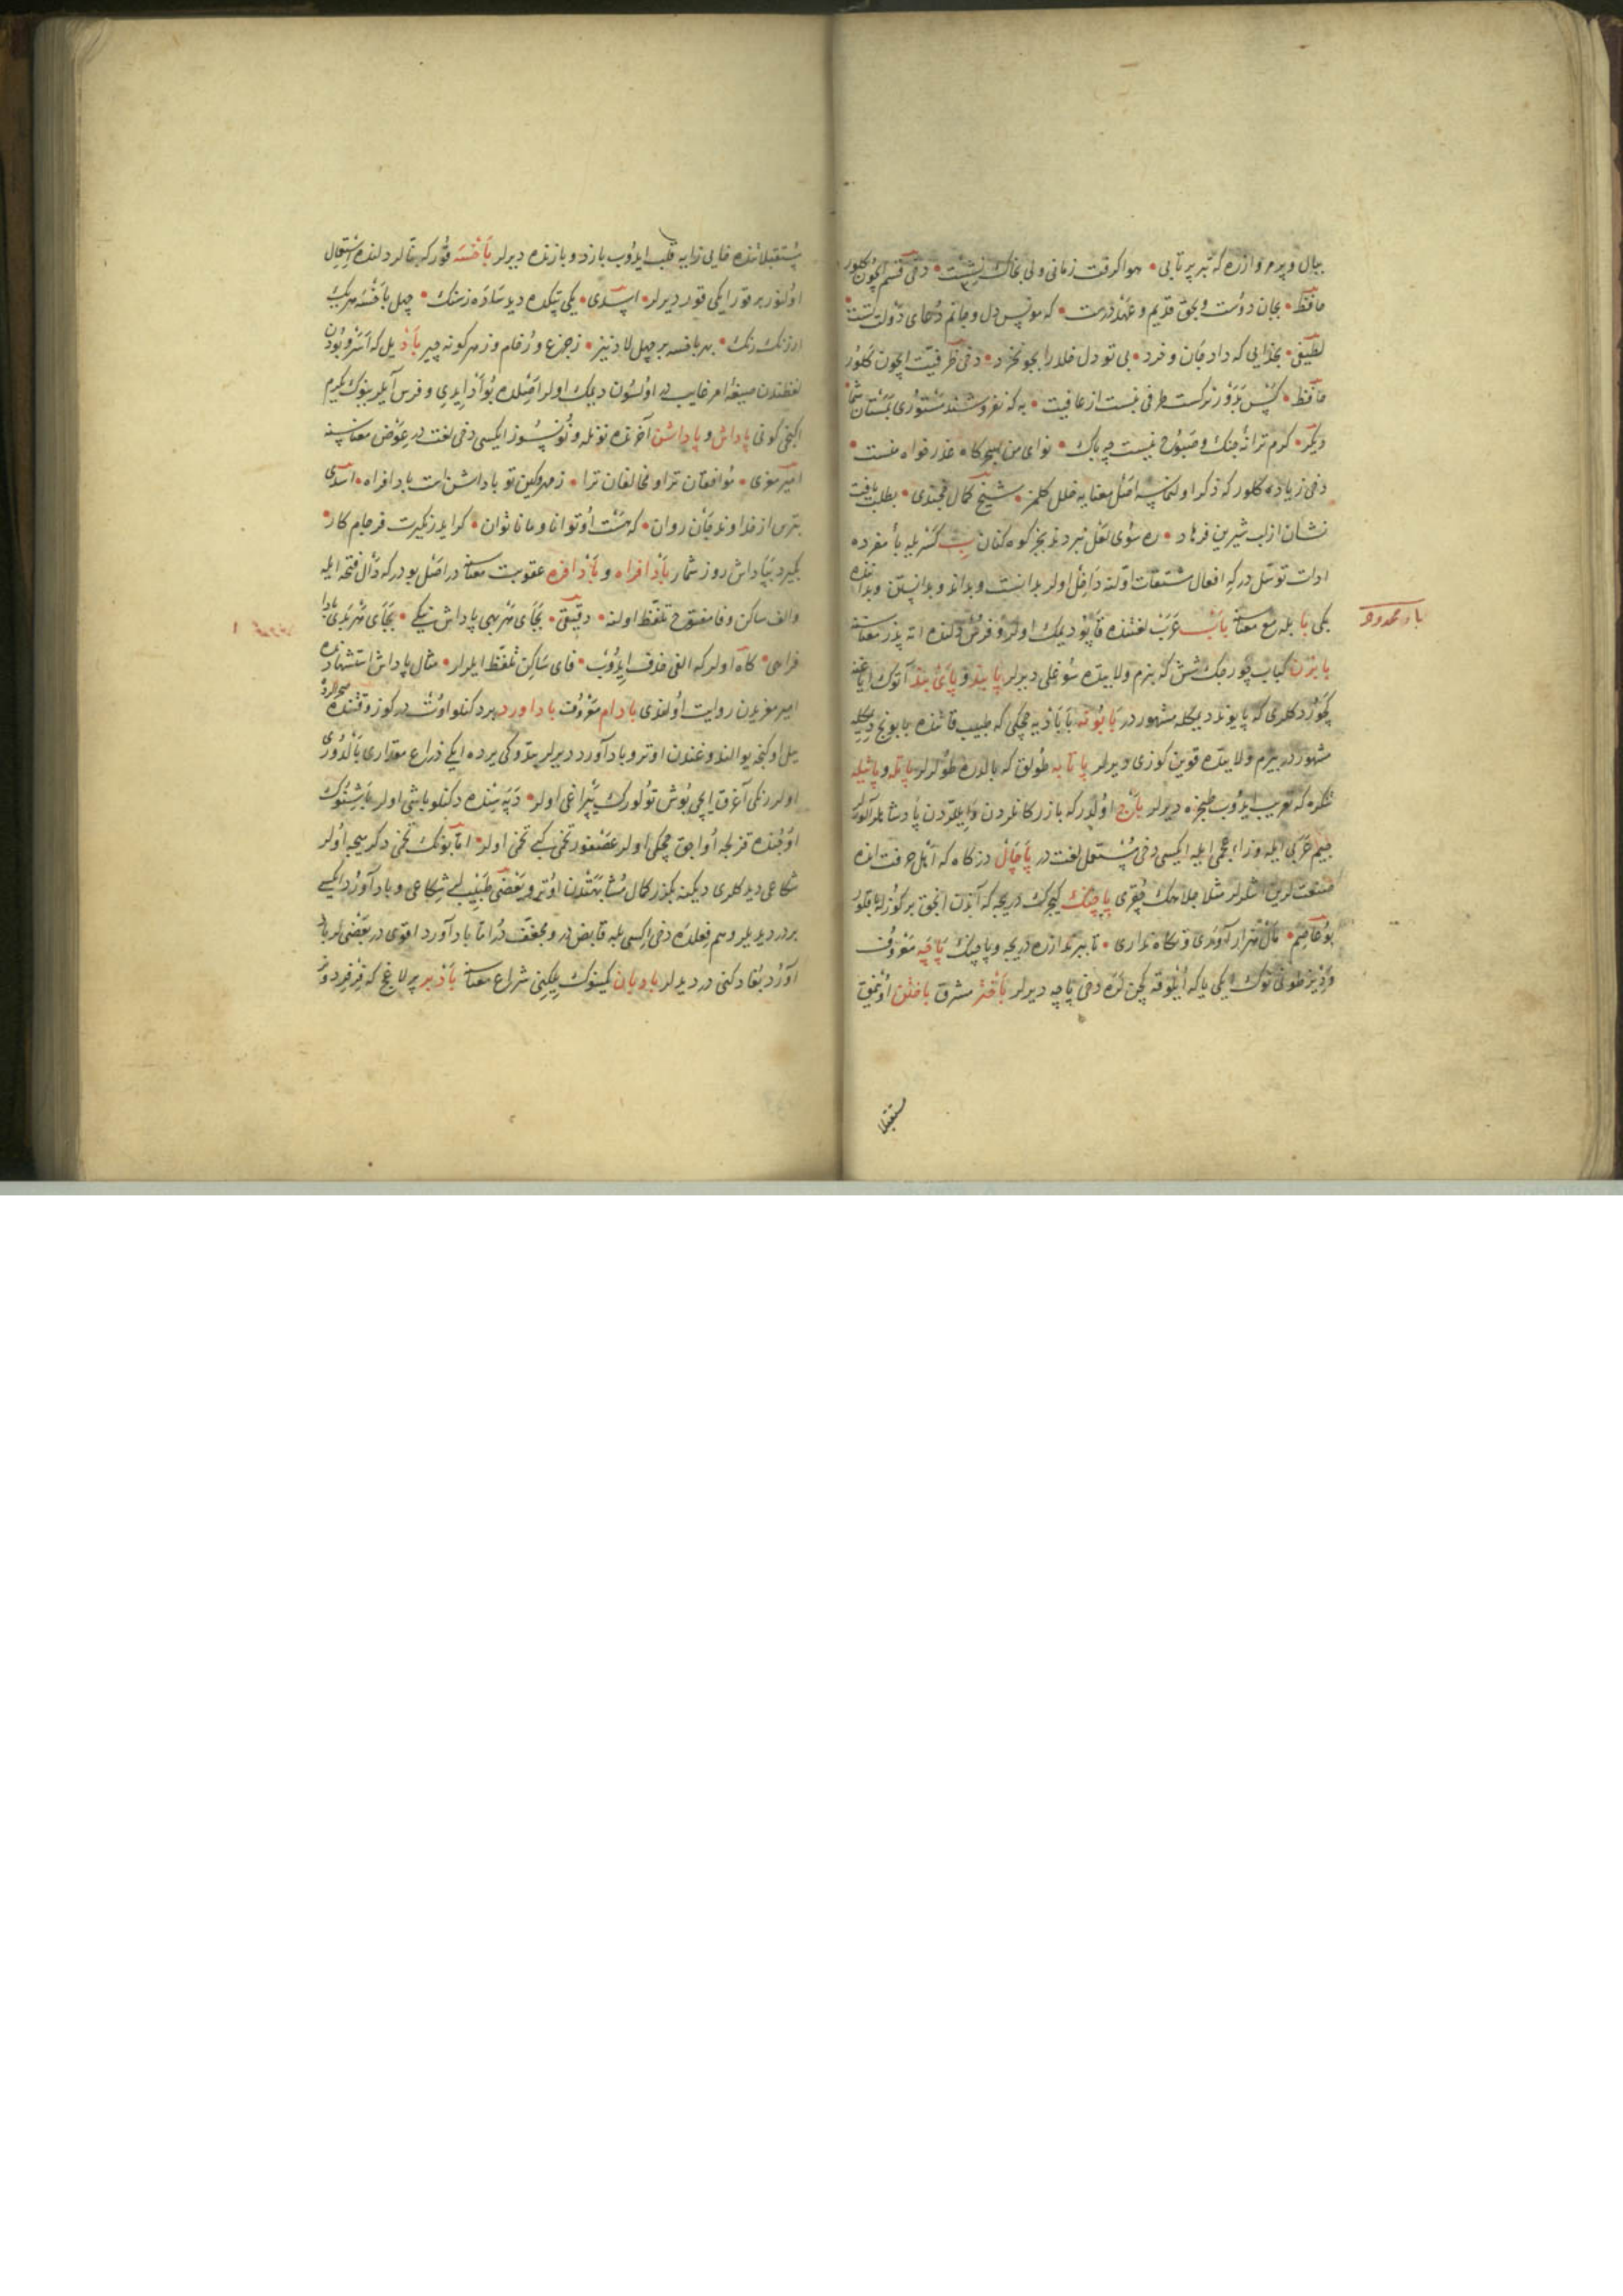 ببال و پر مرو از ره که تیر پرتابی • هوا کرفت زمانی ولی بخاک نشست • دخی قسم ایچون کلور
حافظ • بجان دوست و بحق قدیم و عهد درست • که مونس دل و جانم دعای دولت تست
لطیفی • بخدایی که داد جان و خرد • بی تو دل خلد را بجو نخرد • دخی ظرفیت ایچون کلور
حافظ • کس بدور نرکست طرفی نبست از عافیت • به که نفروشند مستوری بمستان شما
دیکر • کرم ترانه چنک و صبوح نیست چه باک • نوای من بسحرکاه عذر خواه منست •
دخی زیاده کلور که ذکر اولنماسه اصل معنایه خلل کلمز • شیخ کمال خجندی • بطلب یافت
نشان از لب شیرین فرهاد • ره سوی لعل نبردند بجز کوه کنان ب کسر یله با مفرده
ادات توسل در که افعال مشتقات اوله داخل اولر بدانست و بداند و بدانستن و بداننده
یکی با بله مع معناسنه باب عرب لغتنده قاپو دیمک اولر و فرس دلنده اته پدر معناسنه
بابزن کباب چورجک شش که بزم ولایتده سوغلی دیرلر پابند و پای بند آتوک ایاغنه
کچوردکلری که پایوند دیمکله مشهور در بابونه باباذیه چچکی که طبیب قاتنده بابونج دیمکله
مشهور در بیزم ولایتده قوین کوزی دیرلر پاتابه طولق که بالدره طولرلر پاتله و پاتیله
تنکره که تعریب ایدوب طنجره دیرلر باج اولدر که بازرکانلردن و ایللردن پادشاهلر آلور
جیم عربی ایله و زاء عجمی ایله ایکسی دخی مستعمل لغت در پاچال دزکاه که اهل حرفت انده
صنعتلرین اشلرلر مثلا جلاهک چقری پاچنک کیچرک دریجه که آندن انجق بر کوزله باقلور
بو عاصم • مال هزار آوری و نکاه نداری • تا ببر اندازه دریچه و پاچنک پاچه معروف
و دیز طوننوک ایکی یاکه ایلوقه کچن لره دخی پاچه دیرلر باختر مشرق باختن اوینمق
مستقبلا
باء ممدوده
مستقبلاتنده خایی زایه قلب ایدوب بازد و بازنده دیرلر باخسه قور که تتالر دلنده استعمال
اولنور بر قور ایکی قور دیرلر • اسدی • یکی تبکده دید ساده ز سنک • چهل باخسه هر یک
ارژنک رنک • بهر باخسه بر چهل لاد نیز • ز جزع و رخام و ز هر کونه چیز باد یل که اسر و بودن
لفظندن صیغه امر غایب در اولسون دیمک اولر اصلده بواد ایدی و فرس آیلر ینوک یکرم
ایکنجی کونی پاداش و پاداشن آخرنده نونله و نونسوز ایکسی دخی لغت در عوض معناسنه
امیر معزی • موافقان ترا و مخالفان ترا • ز مهر و کین تو پاداشن است باد افراه • اسدی
بترس از خداوند جان و روان • که هست او توانا و ما ناتوان • کرایدر نکیرت فرجام کار •
بکیرد بپاداش روز شمار باد افراه و باد افره عقوبت معناسنه در اصل بو در که دال فتحه ایله
و الف ساکن و فا مفتوح تلفظ اولنه • دقیقی • بجای هر بهی پاداش نیکی • بجای هر بدی باد
فراهی • کاه اولر که الفی حذف ایدوب • فای ساکن تلفظ ایلرلر • مثال پاداش استشهادنده
امیر معزیدن روایت اولندی بادام معروف باد اورد بر دکنلو اوت در کوز وقتنده صحرالرده
یل اوکنجه یوالندوغندن اوترو باد آورد دیرلر بتدوکی یرده ایکی ذراع مقداری بالدوری
اولر رنکی آغ و ایچی بوش تولورک یپراغی اولر • دپه سنده دکنلو باشی اولر باشنوک
اوجنده قزلجه اواجق چچکی اولر عصفور تخمی کبی تخمی اولر • اما بونک تخمی دکر میجه اولر
شکاعی دیدکلری دیکنه بکزر کمال مشابهتدن اوترو بعضی طبیبلر شکاعی و باد آورد ایکیسی
بردر دیدیلر و هم فعلده دخی ایکسی بله قابض در و مجفف در اما باد آورد اقوی در بعضی لر باد
آورد بغداد کنی در دیدیلر بادبان کمینوک یلکنی شراع معناسنه باذبر پر لاغج که فرفر دور